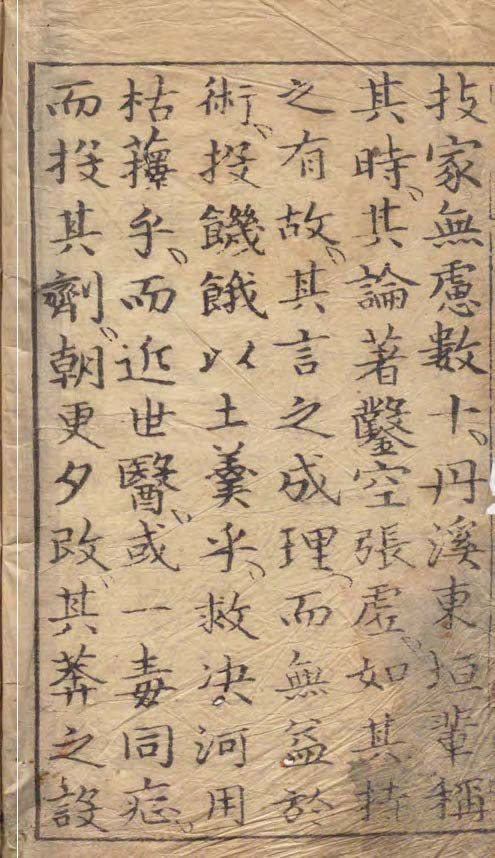 技家無慮數十、丹溪東垣輩稱
其時、其論著鑿空張虛、如其持
之有故、其言之成理、而無益於
術、投饑餓以土羹乎、救决河用
枯蘀乎、而近世醫、或一毒同忘、
而投其劑、朝更夕改、其莽之設